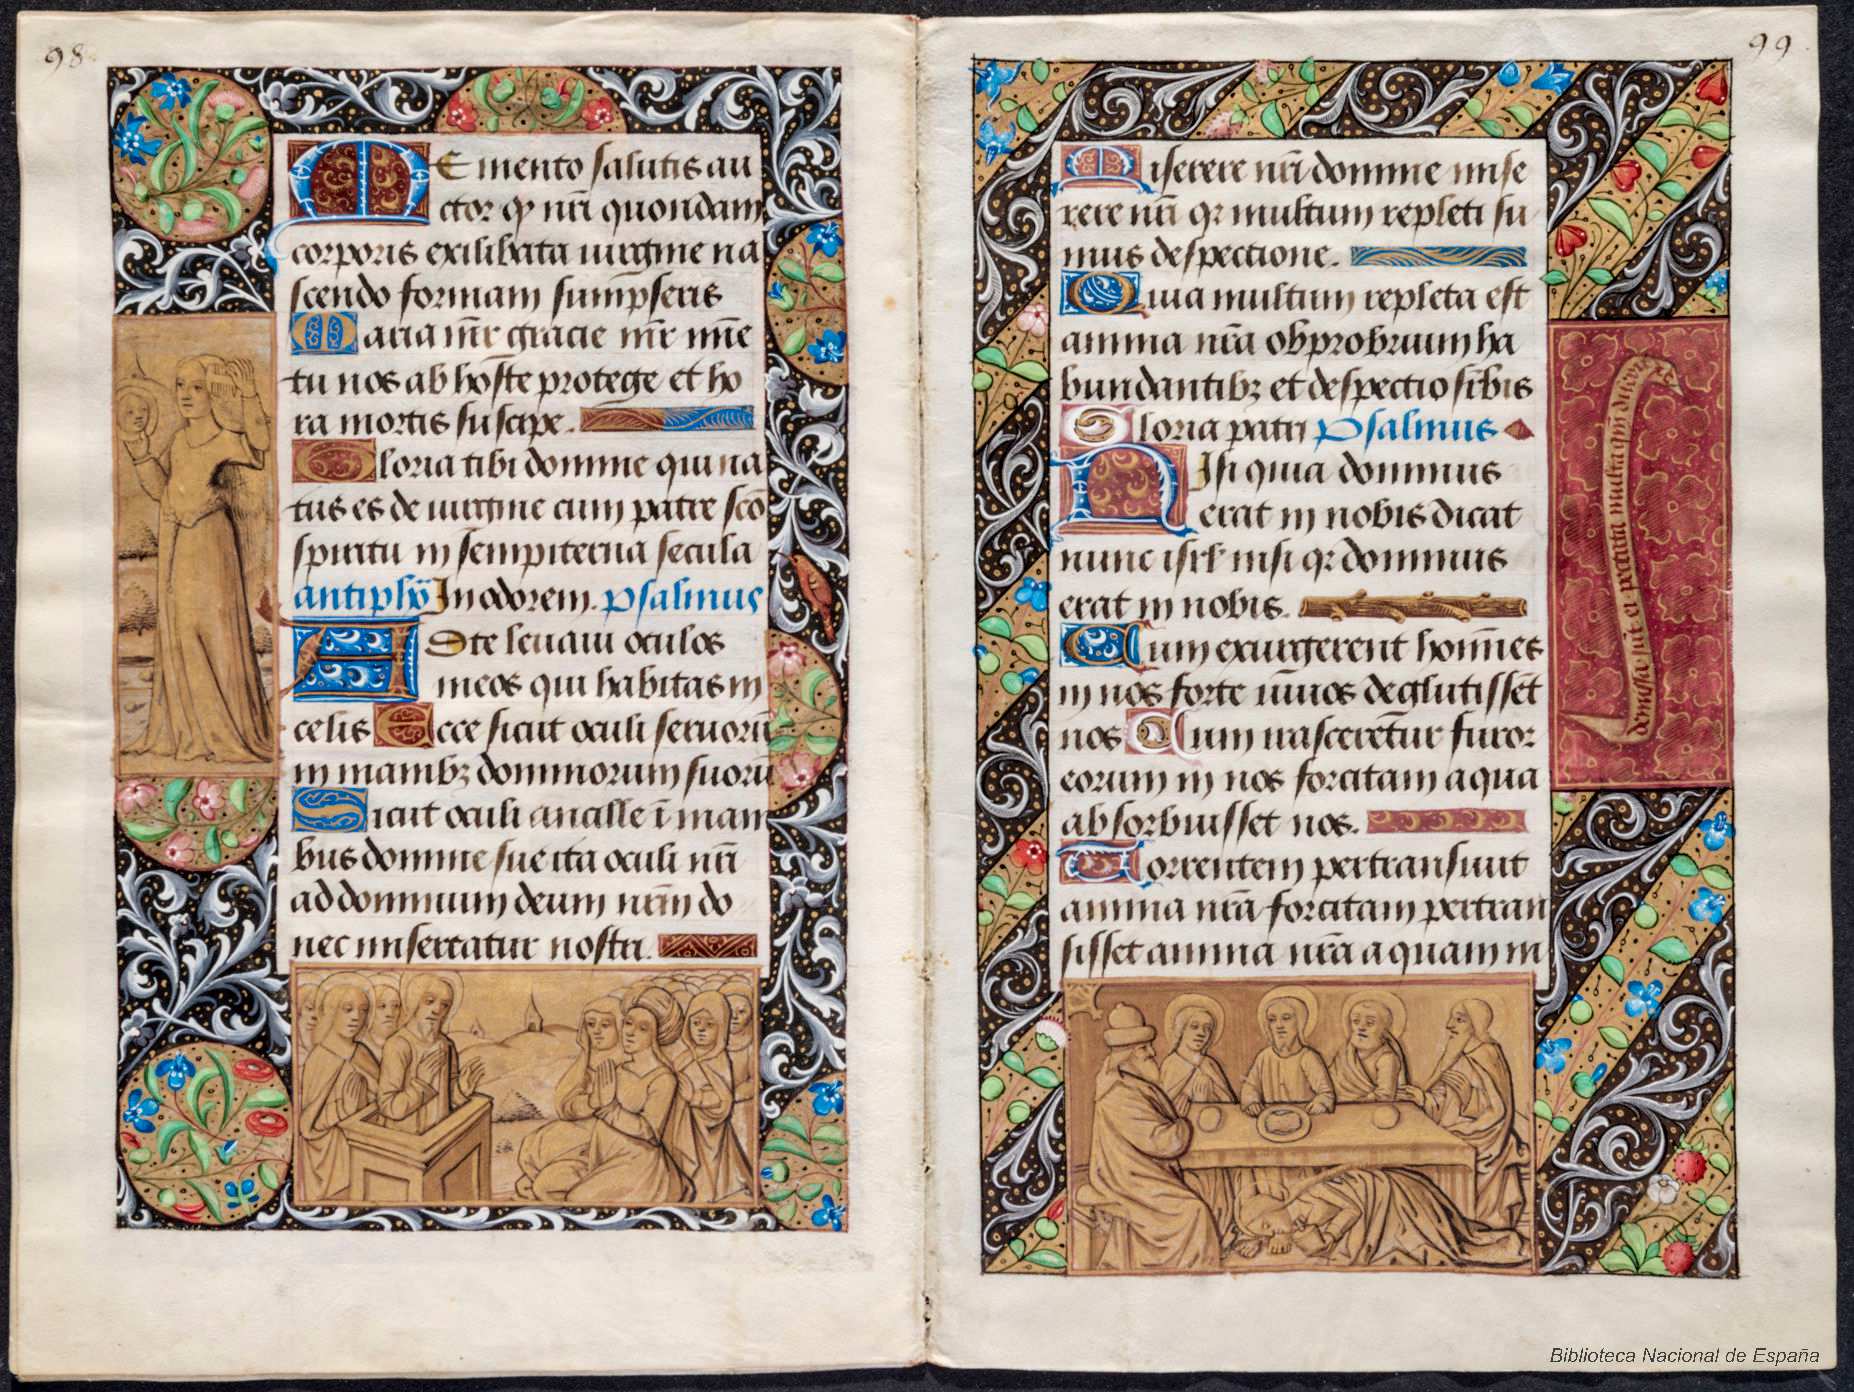 98
Memento salutis au
ctor qȝ nr̄i quondam
corporis exilibata uirgine na
scendo formam sumpseris
Maria mr̄ gracie mr̄ mīe
tu nos ab hoste protege et ho
ra mortis suscipe.
Gloria tibi domine qui na
tus es de uirgine cum patre sc̄o
spiritu in sempiterna secula
antiphō In odorem. psalmus
Ad te leuaui oculos
meos qui habitas in
celis Ecce sicut oculi seruorū
in manibȝ dominorum suorū
Sicut oculi ancille ī mani
bus domine sue ita oculi nr̄i
ad dominum deum nr̄m do
nec misereatur nostri.
99
Miserere nr̄i domine mise
rere nr̄i qr̄ multum repleti su
mus despectione.
Quia multum repleta est
anima nr̄a obprobrium ha
bundantibȝ et despectio suꝑbis
Gloria patri psalmus
Nisi quia dominus
erat in nobis dicat
nunc isrl̄ nisi qr̄ dominus
erat in nobis.
Cum exurgerent homīes
in nos forte uiuos deglutissēt
nos Cum irascerētur furor
eorum in nos forcitam aqua
absorbuisset nos.
Torrentem pertransiuit
anima nr̄a forcitam pertran
sisset anima nr̄a aquam in
demissa sūt ei peccata multa qm̄ dilexit
Biblioteca Nacional de España